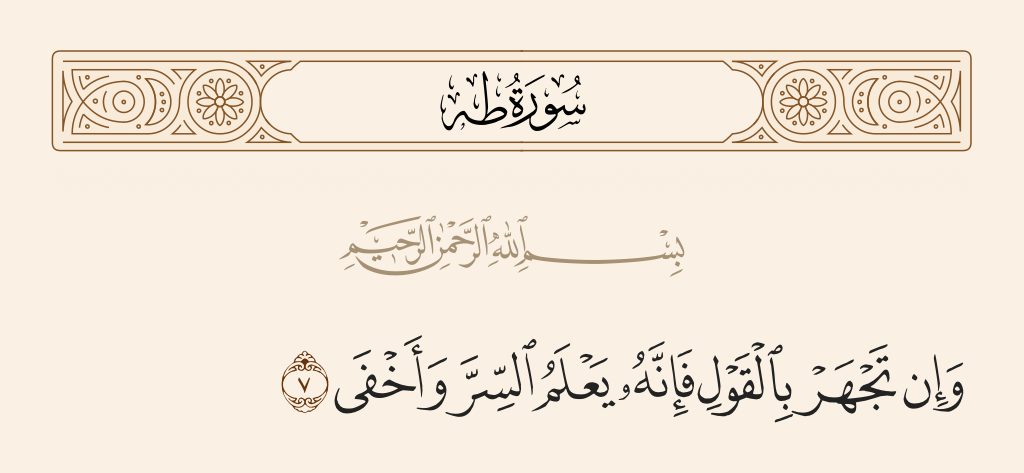 سُورَةُ طه
بِسْمِ ٱللَّهِ ٱلرَّحْمَٰنِ ٱلرَّحِيمِ
وَإِن تَجْهَرْ بِٱلْقَوْلِ فَإِنَّهُۥ يَعْلَمُ ٱلسِّرَّ وَأَخْفَى ٧